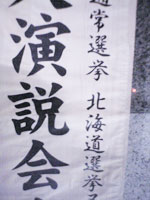 通常選挙 北海道選挙
演説会